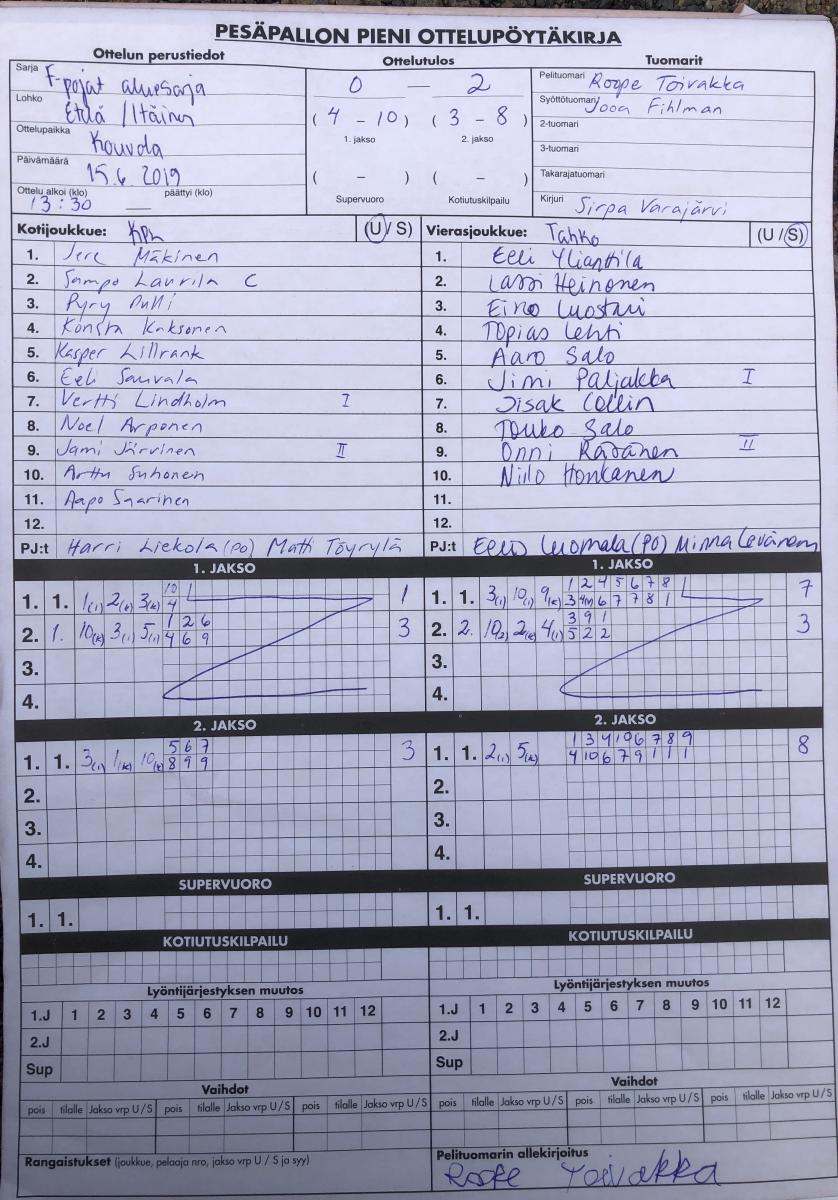 PESÄPALLON PIENI OTTELUPÖYTÄKIRJA
Ottelun perustiedot
Sarja F-pojat aluesarja
Lohko Etelä / Itäinen
Ottelupaikka Kouvola
Päivämäärä 15.6.2019
Ottelu alkoi (klo) päättyi (klo)
13:30 —
Ottelutulos
0 — 2
( 4 - 10 ) ( 3 - 8 )
1. jakso 2. jakso
( - ) ( - )
Supervuoro Kotiutuskilpailu
Tuomarit
Pelituomari Roope Toivakka
Syöttötuomari Jooa Fihlman
2-tuomari
3-tuomari
Takarajatuomari
Kirjuri Sirpa Varajärvi
Kotijoukkue: KPL (U / S)
1. Jere Mäkinen
2. Sampo Laurila C
3. Pyry
4. Konsta Kaksonen
5. Kasper Lillrank
6. Eeli Sauvala
7. Vertti Lindholm I
8. Noel Arponen
9. Jami Järvinen II
10. Arttu Suhonen
11. Aapo Saarinen
12.
PJ:t Harri Liekola (PO) Matti Töyrylä
Vierasjoukkue: Tahko (U / S)
1. Eeli Ylianttila
2. Lassi Heinonen
3. Eino Luostari
4. Topias Lehti
5. Aaro Salo
6. Jimi Paljakka I
7. Iisak Collin
8. Touko Salo
9. Onni Räsänen II
10. Niilo Honkanen
11.
12.
PJ:t Eero Luomala (PO) Minna Levänen
1. JAKSO
10 1
1. 1. 1(1) 2(k) 3(k) 4 1
1 2 6
2. 1. 10(k) 3(1) 5(1) 4 6 9 3
3.
4.
1. JAKSO
1 2 4 5 6 7 8
1. 1. 3(1) 10(1) 9(k) 3 4 6 7 7 8 1 7
3 9 1
2. 2. 10(2) 2(k) 4(1) 5 2 2 3
3.
4.
2. JAKSO
5 6 7
1. 1. 3(1) 1(k) 10(k) 8 9 9 3
2.
3.
4.
2. JAKSO
1 3 4 10 6 7 8 9
1. 1. 2(1) 5(k) 4 10 6 7 9 1 1 1 8
2.
3.
4.
SUPERVUORO
1. 1.
SUPERVUORO
1. 1.
KOTIUTUSKILPAILU
KOTIUTUSKILPAILU
Lyöntijärjestyksen muutos
1.J 1 2 3 4 5 6 7 8 9 10 11 12
2.J
Sup
Lyöntijärjestyksen muutos
1.J 1 2 3 4 5 6 7 8 9 10 11 12
2.J
Sup
Vaihdot
pois tilalle Jakso vrp U / S pois tilalle Jakso vrp U / S pois tilalle Jakso vrp U / S
Vaihdot
pois tilalle Jakso vrp U / S pois tilalle Jakso vrp U / S pois tilalle Jakso vrp U / S
Rangaistukset (joukkue, pelaaja nro, jakso vrp U / S ja syy)
Pelituomarin allekirjoitus
Roope Toivakka